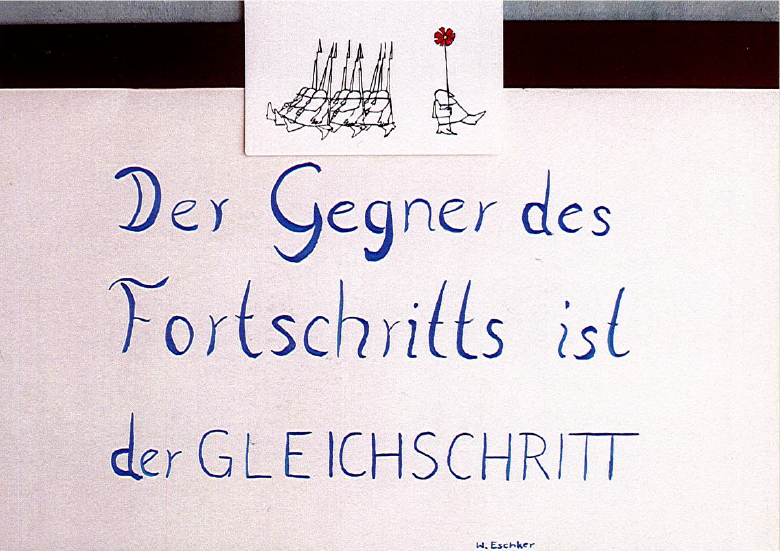 Der Gegner des
Fortschritts ist
der GLEICHSCHRITT
W. Eschker